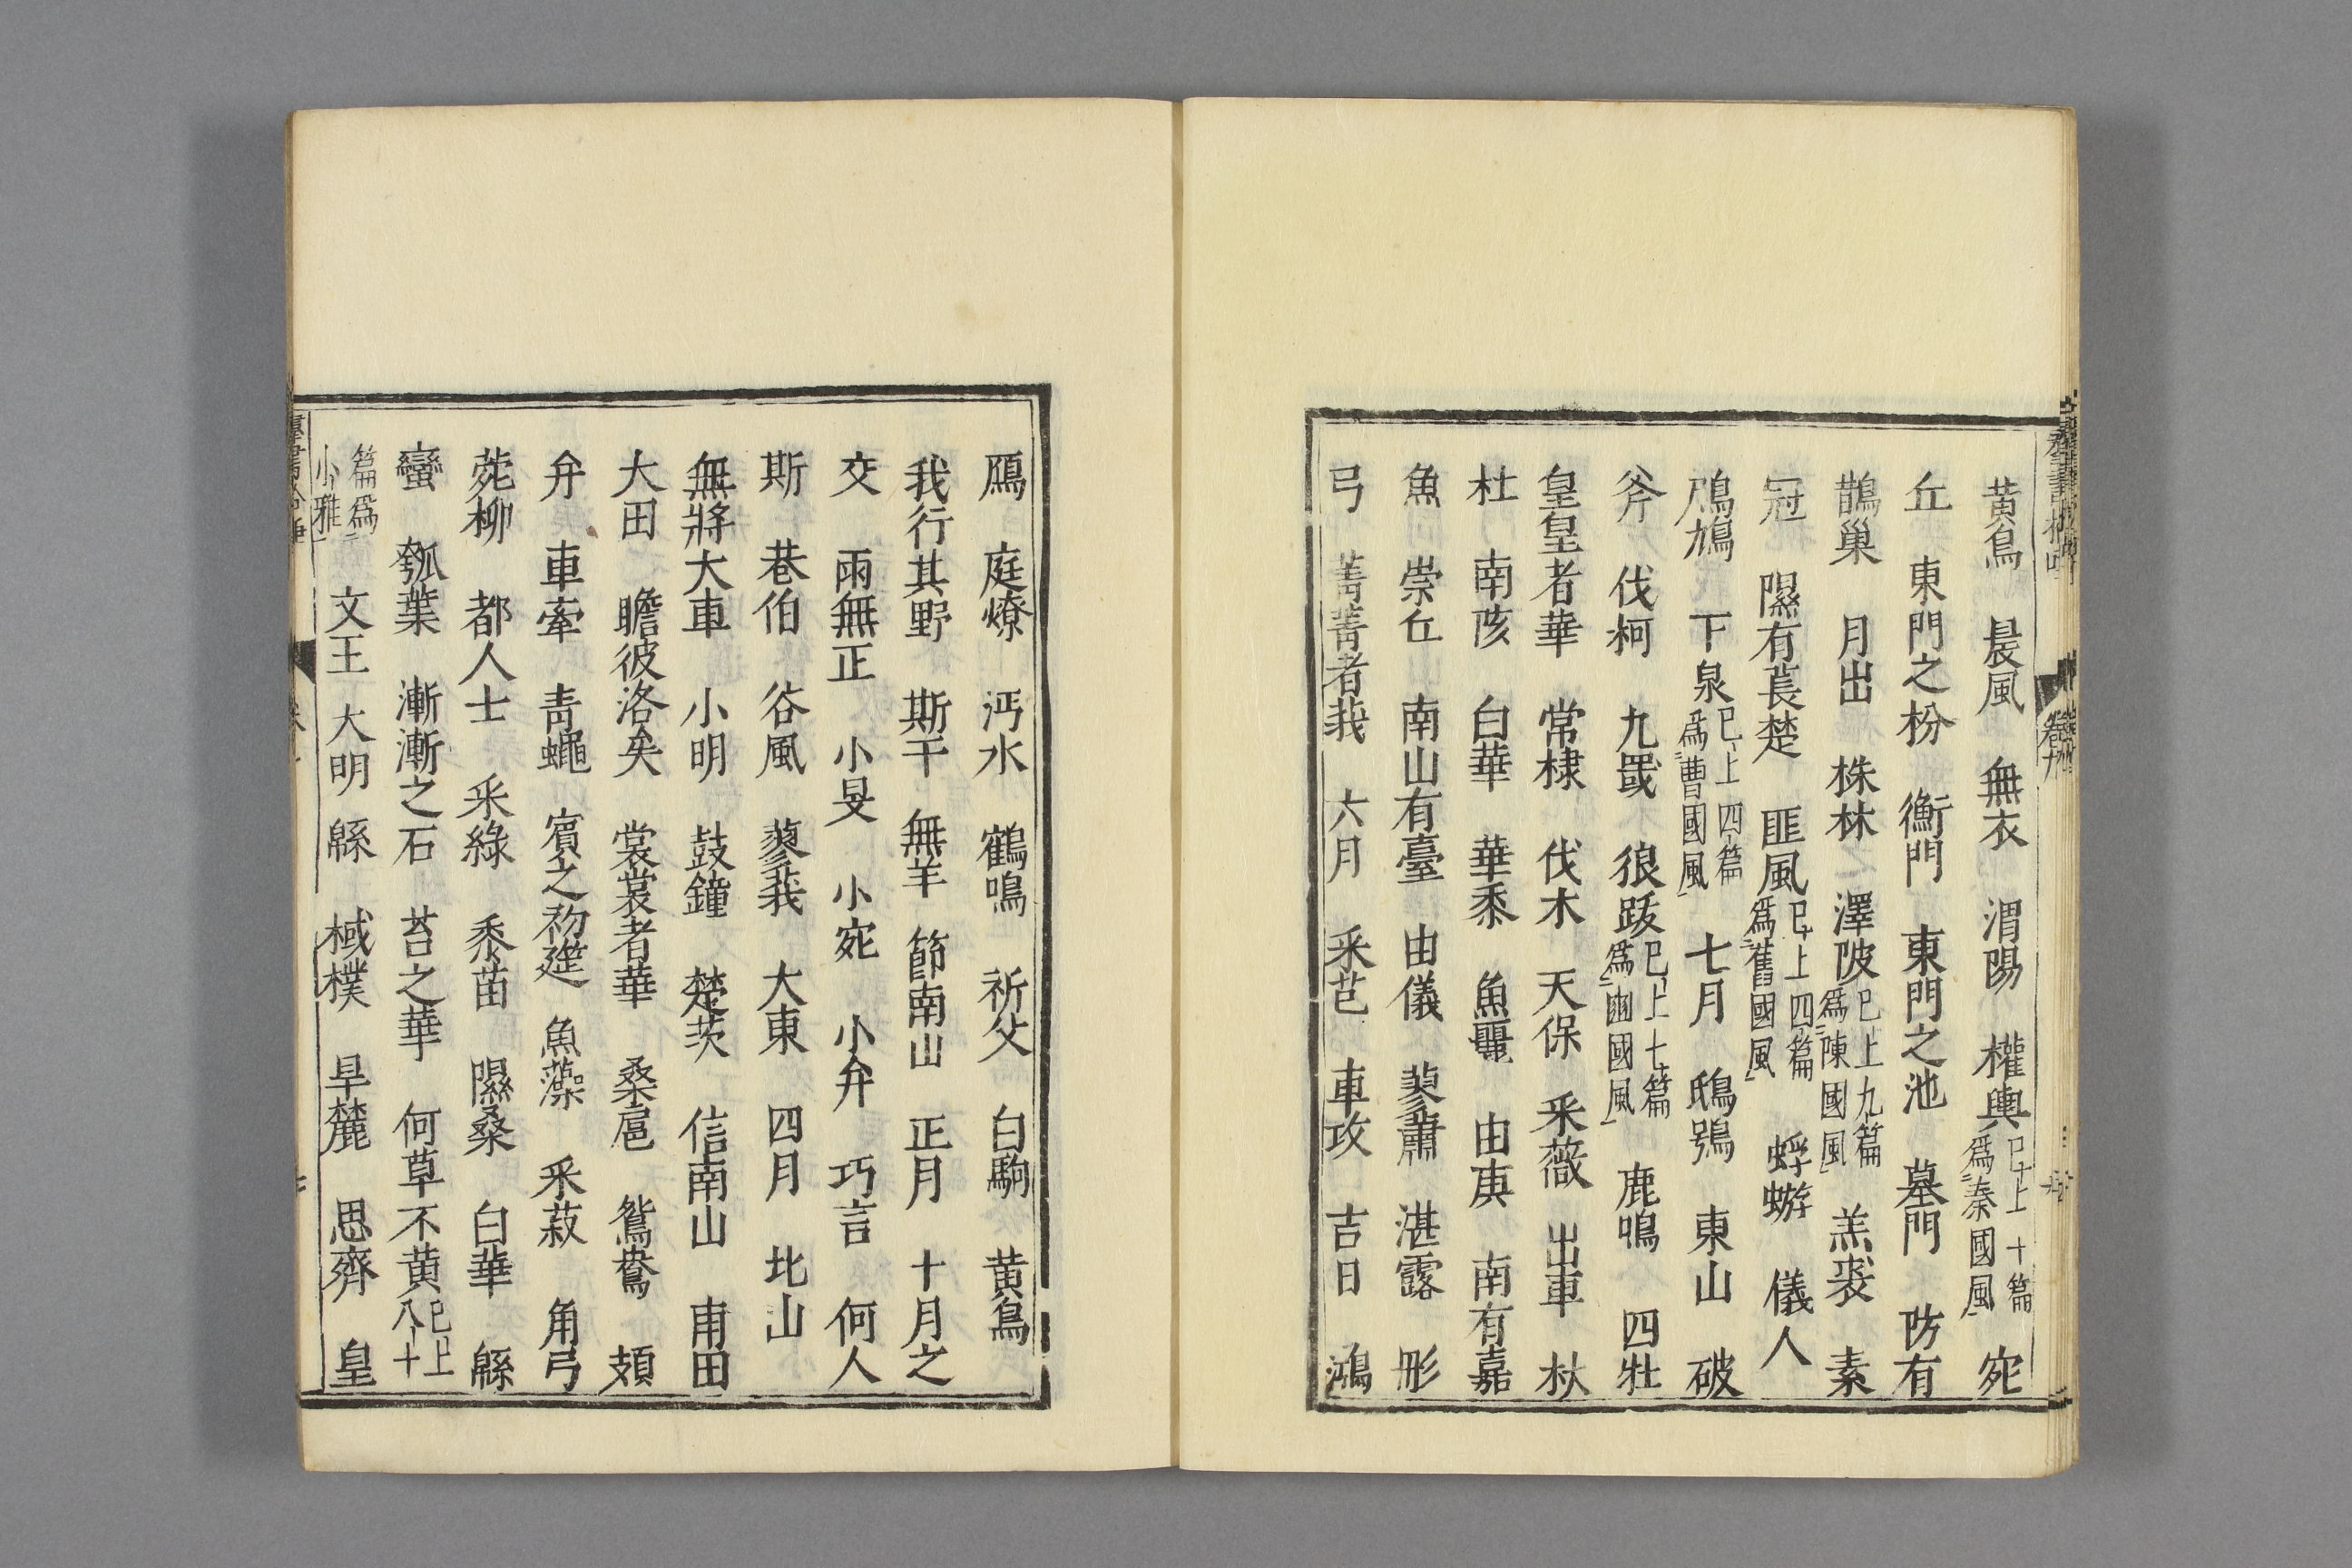 黃鳥　晨風　無衣　渭陽　權輿已上十篇爲秦國風　宛
丘　東門之枌　衡門　東門之池　墓門　防有
鵲巢　月出　株林　澤陂已上九篇爲陳國風　羔裘　素
冠　隰有萇楚　匪風已上四篇爲舊國風　蜉蝣　儀人
鳲鳩　下泉已上四篇爲曹國風　七月　鴟鴞　東山　破
斧　伐柯　九罭　狼跋已上七篇爲豳國風　鹿鳴　四牡
皇皇者華　常棣　伐木　天保　采薇　出車　杕
杜　南陔　白華　華黍　魚麗　由庚　南有嘉
魚　崇丘　南山有臺　由儀　蓼蕭　湛露　彤
弓　菁菁者莪　六月　采芑　車攻　吉日　鴻
鴈　庭燎　沔水　鶴鳴　祈父　白駒　黃鳥
我行其野　斯干　無羊　節南山　正月　十月之
交　雨無正　小旻　小宛　小弁　巧言　何人
斯　巷伯　谷風　蓼莪　大東　四月　北山
無將大車　小明　鼓鐘　楚茨　信南山　甫田
大田　瞻彼洛矣　裳裳者華　桑扈　鴛鴦　頍
弁　車牽　靑蠅　賓之初筵　魚藻　采菽　角弓
菀柳　都人士　采綠　黍苗　隰桑　白華　緜
蠻　瓠葉　漸漸之石　苕之華　何草不黃已上八十
篇爲小雅　文王　大明　緜　棫樸　旱麓　思齊　皇